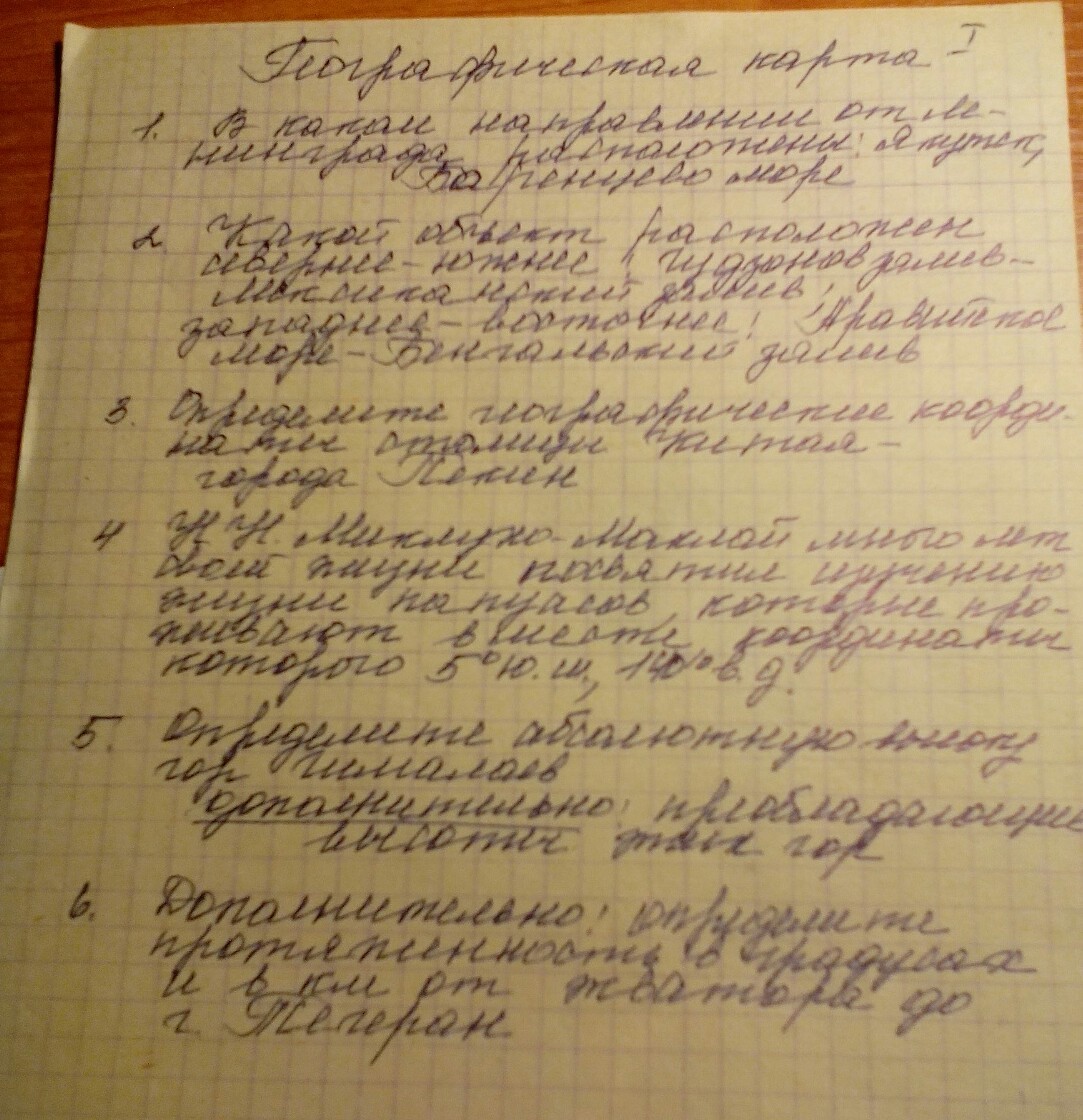 Географическая карта I
1. В каком направлении от Ле-
нинграда расположены: Якутск,
Баренцево море
2. Какой объект расположен
севернее-южнее: Гудзонов залив-
Мексиканский залив,
западнее-восточнее: Аравийское
море-Бенгальский залив
3. Определите географические коорди-
наты столицы Китая-
города Пекин
4 Н.Н. Миклухо-Маклай много лет
своей жизни посвятил изучению
жизни папуасов, которые про-
живают в месте, координаты
которого 5° ю.ш., 140° в.д.
5. Определите абсолютную высоту
гор Гималаев
дополнительно: преобладающие
высоты этих гор
6. Дополнительно: определите
протяженность в градусах
и в км от экватора до
г. Тегеран